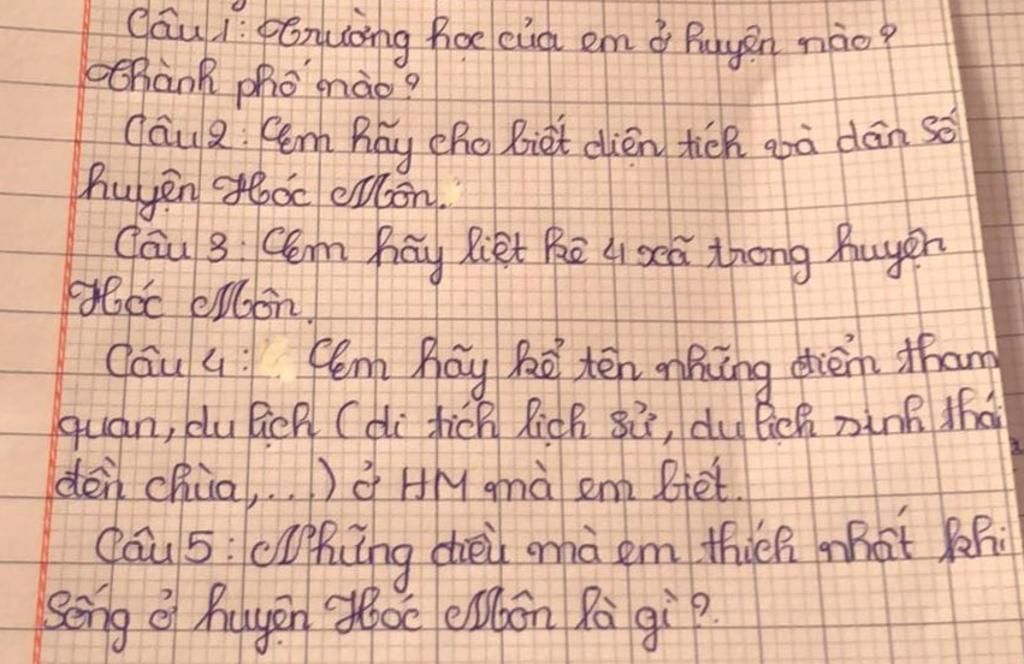 Câu 1: Trường học của em ở huyện nào?
Thành phố nào?
Câu 2: Em hãy cho biết diện tích và dân số
huyện Hóc Môn.
Câu 3: Em hãy liệt kê 4 xã trong huyện
Hóc Môn.
Câu 4: Em hãy kể tên những điểm tham
quan, du lịch (di tích lịch sử, du lịch sinh thái
đền chùa,...) ở HM mà em biết.
Câu 5: Những điều mà em thích nhất khi
sống ở huyện Hóc Môn là gì?